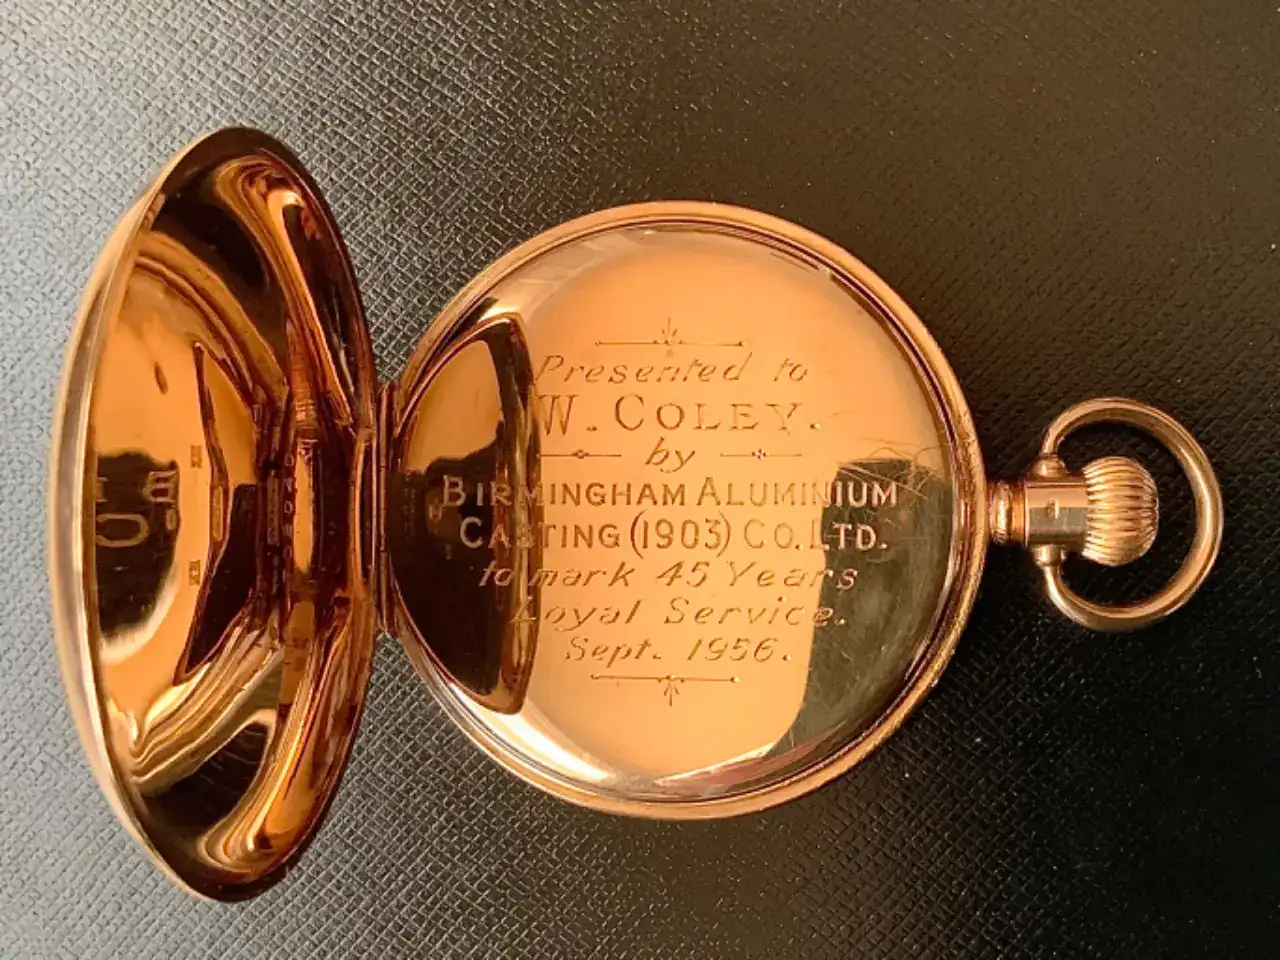 Presented to
W. COLEY.
by
BIRMINGHAM ALUMINIUM
CASTING (1903) CO. LTD.
to mark 45 Years
Loyal Service.
Sept. 1956.